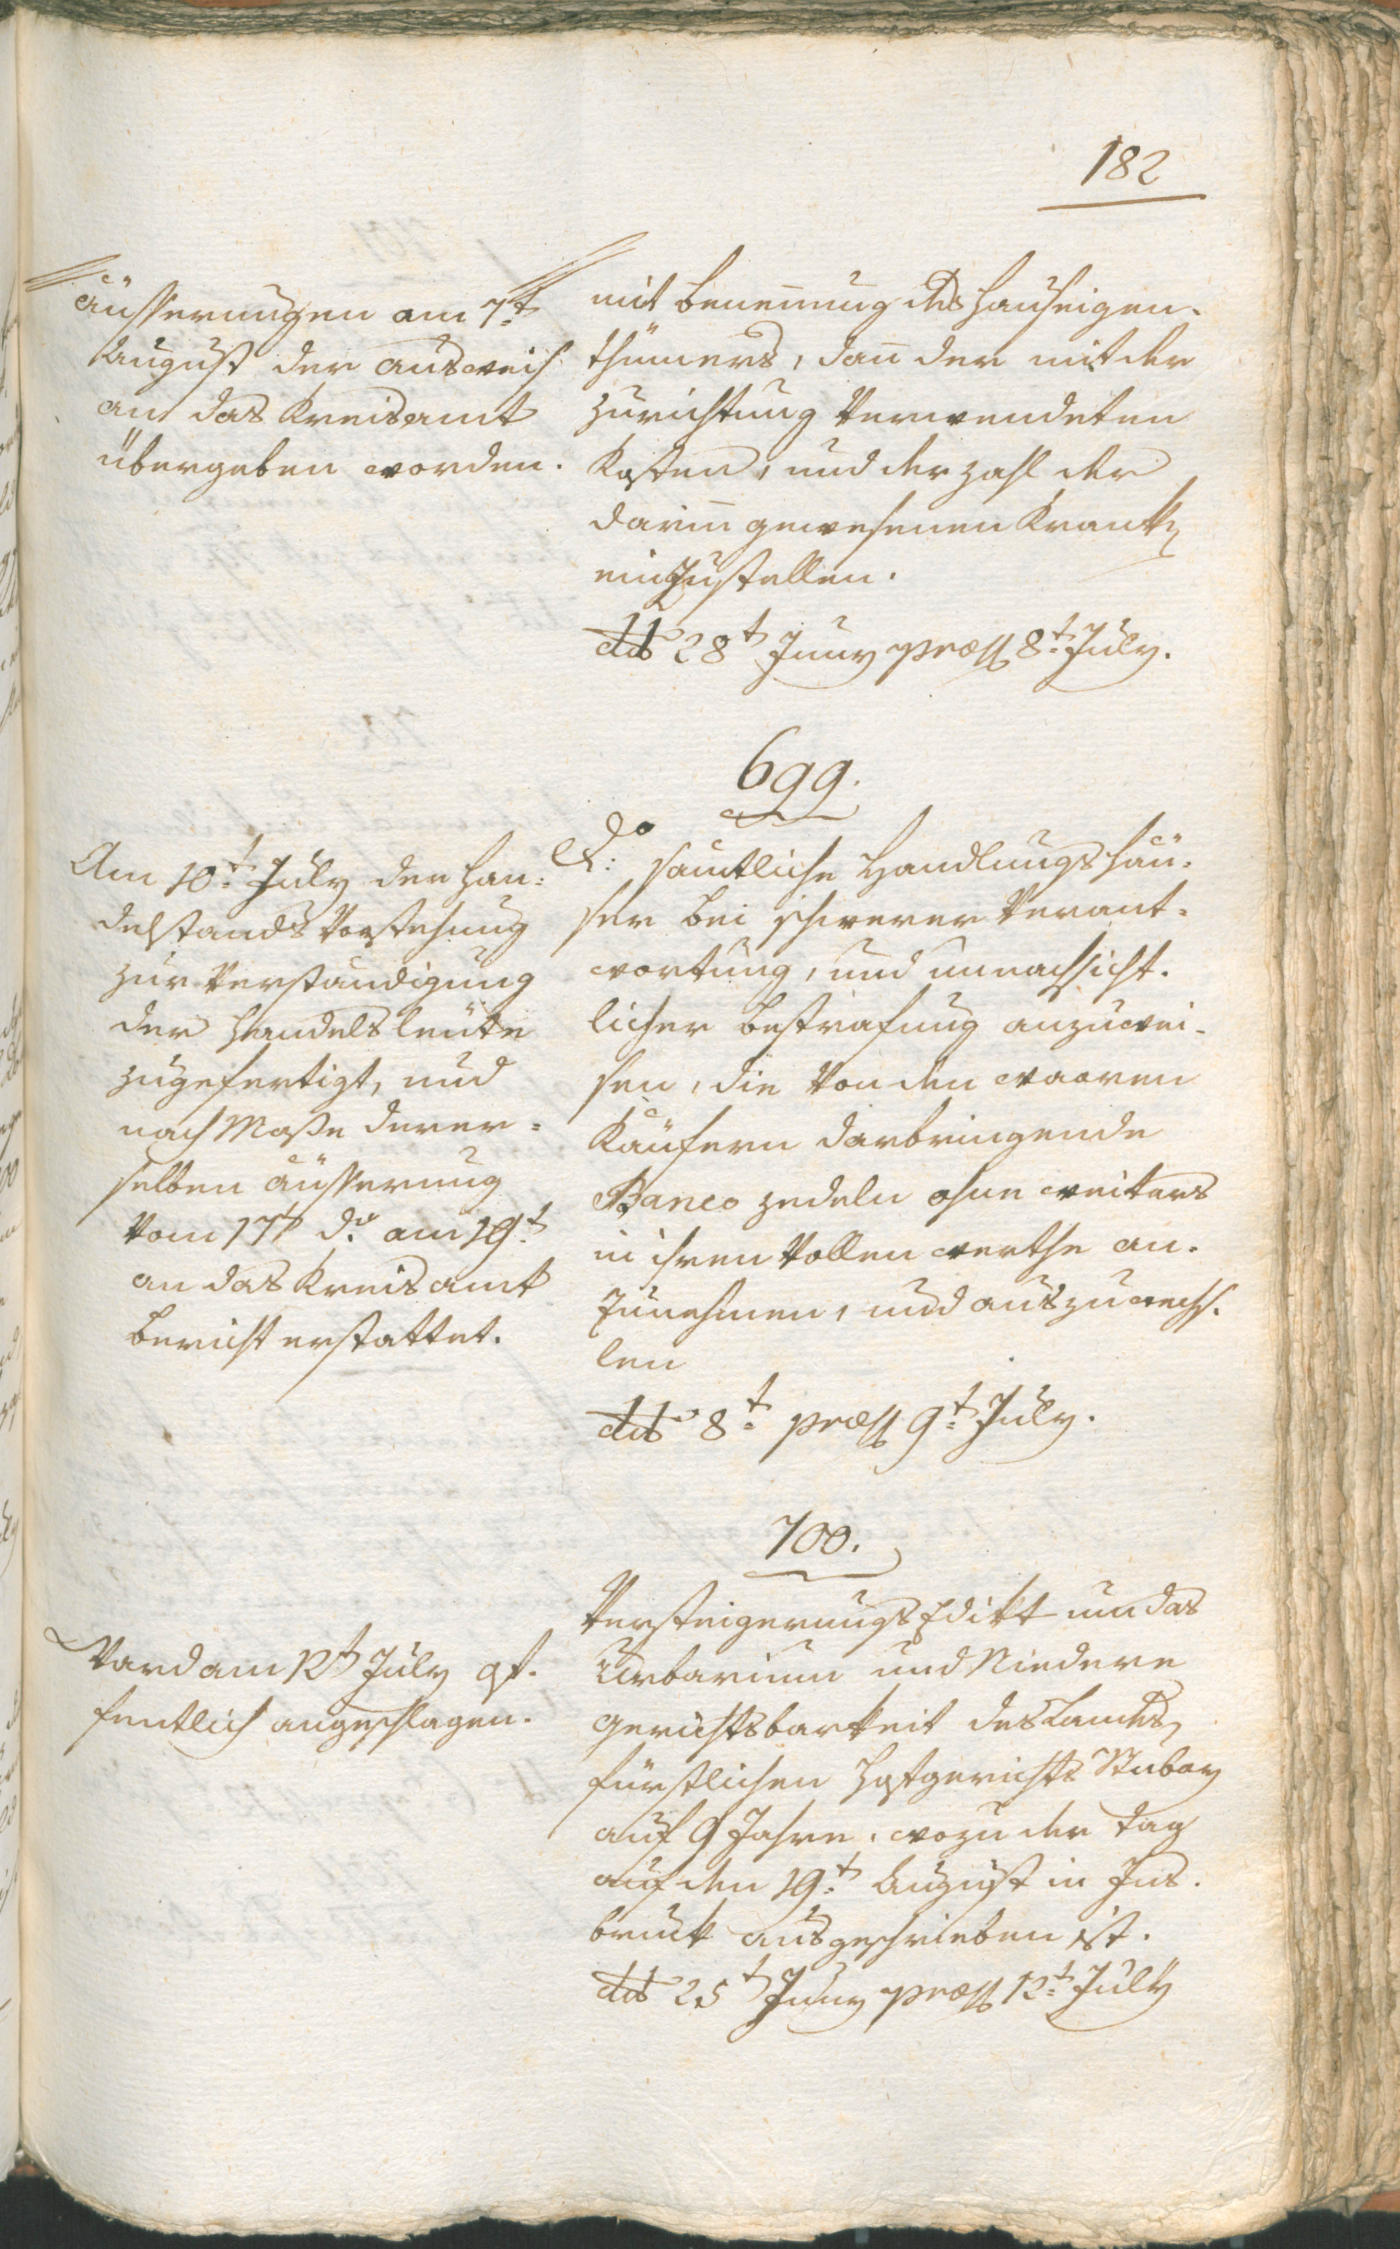 182
äusserungen am 7t
August der ausweis
an das Kreisamt
übergeben worden.
mit benennung des Hauseigen-
thümers, dann der mit der
zurichtung Verwendeten
Kosten, und der zahl der
darinn gewesenen Krank
einzustellen.
ddo 28t Juny præs 8t July.
699.
Am 10t July der Han-
delstands Vorstehung
zur Verständigung
der Handelsleüte
zugefertigt, und
nach Maße derer-
selben äusserung
Vom 17t do am 19t
an das Kreisamt
bericht erstattet.
do sämtliche Handlungshäu-
ser bei schwerer Verant-
wortung, und unnachsicht-
licher bestrafung anzuwei-
sen, die Von den waaren
Käufern darbringende
Banco zedeln ohne weiters
in ihren Vollen werthe an-
zunehmen, und auszuwechs-
len
ddo 8t præs 9t July.
700.
Ward am 12t July öf-
fentlich angeschlagen.
Versteigerungs Edikt um das
Urbarium und Niedere
gerichtsbarkeit des Landes
fürstlichen Hofgerichts Stubay
auf 9 Jahre, wozu der tag
auf den 19t August in Ins-
bruck ausgeschrieben ist.
ddo 25t Juny præs 12t July